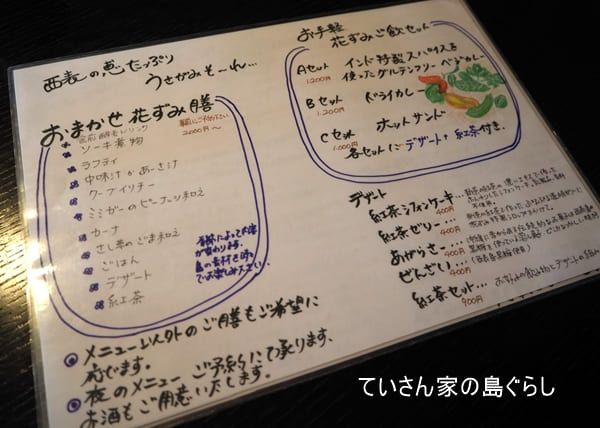 西表の恵たっぷり
うさがみそーれ…
おまかせ 花ずみ膳
2000円〜
ソーキ煮物
ラフティ
中味汁かあーさ汁
クーブイリチー
ミミガーのピーナッツ和え
カーナ
さし草のごま和え
ごはん
デザート
紅茶
季節によって内容が
変わります。
島の素材を時々
でお楽しみ下さい。
◎メニュー以外のご膳もご希望に
応じます。
◎夜のメニュー ご予約にて承ります、
お酒もご用意いたします。
お手軽
花ずみご飯セット
Aセット
1,200円
インド特製スパイスを
使ったグルテンフリー ベジカレー
Bセット
1,200円
ドライカレー
Cセット
1,000円
ホットサンド
各セットにデザート+紅茶付き.
デザート
紅茶シフォンケーキ…
400円
紅茶ゼリー…
400円
あがらさー…
400円
ぜんざい…
400円
紅茶セット…
900円
ていさん家の島ぐらし